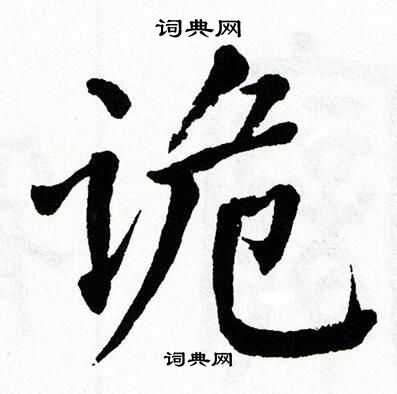 词典网
诡
词典网